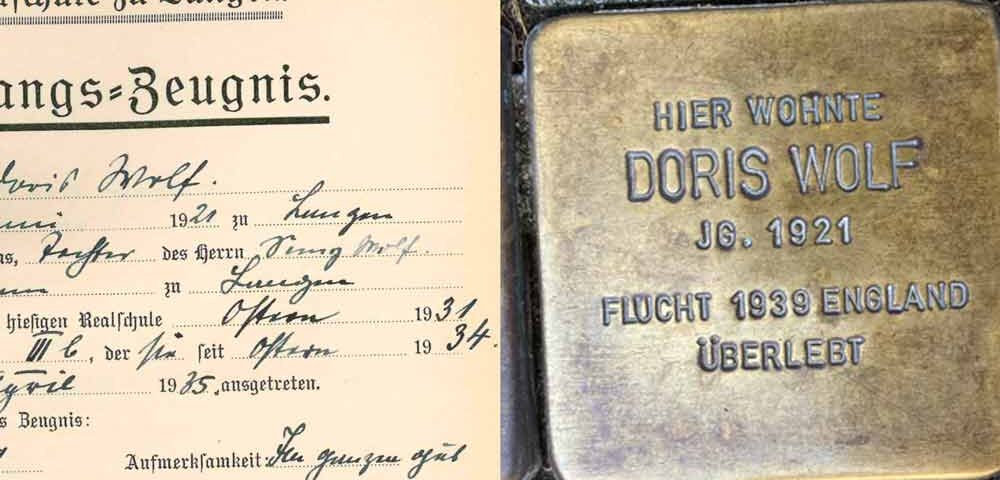 angs-Zeugnis.
Doris Wolf.
1921 zu Langen
Tochter des Herrn Wolf.
zu Langen
hiesigen Realschule Ostern 1931
III b, der sie seit Ostern 1934.
April 1935 ausgetreten.
s Zeugnis:
Aufmerksamkeit: Im ganzen gut
HIER WOHNTE
DORIS WOLF
JG. 1921
FLUCHT 1939 ENGLAND
ÜBERLEBT